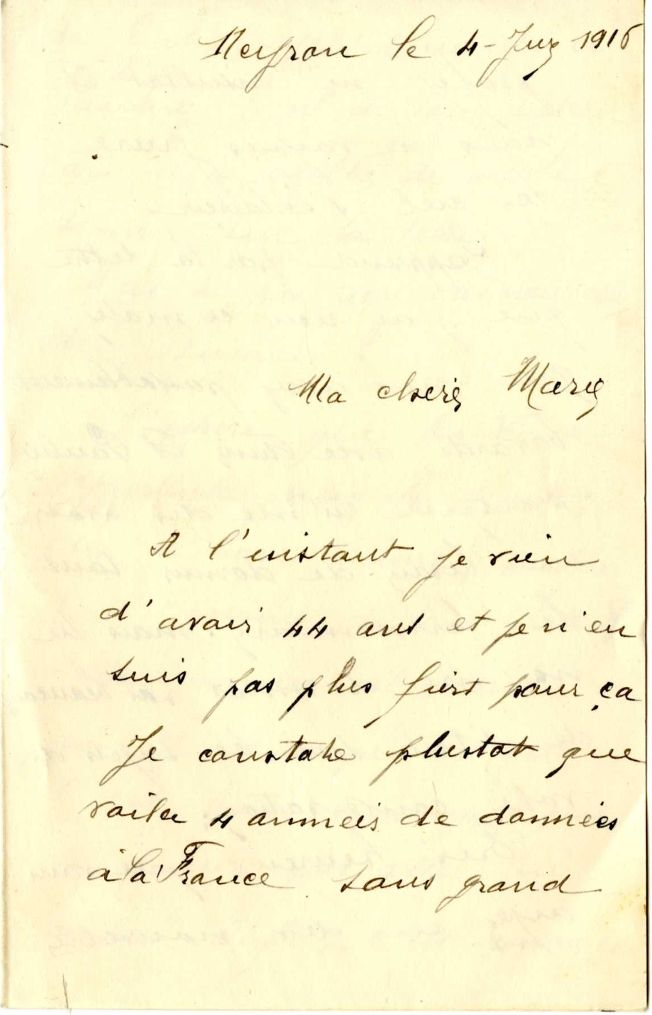 Meyron le 4 - Juy 1916
Ma cherie Marie
A l'instant je vien
d'avoir 44 ans et je n'en
suis pas plus fiert pour ça
Je constate plustot que
voila 4 anneés de données
à la France sans grand